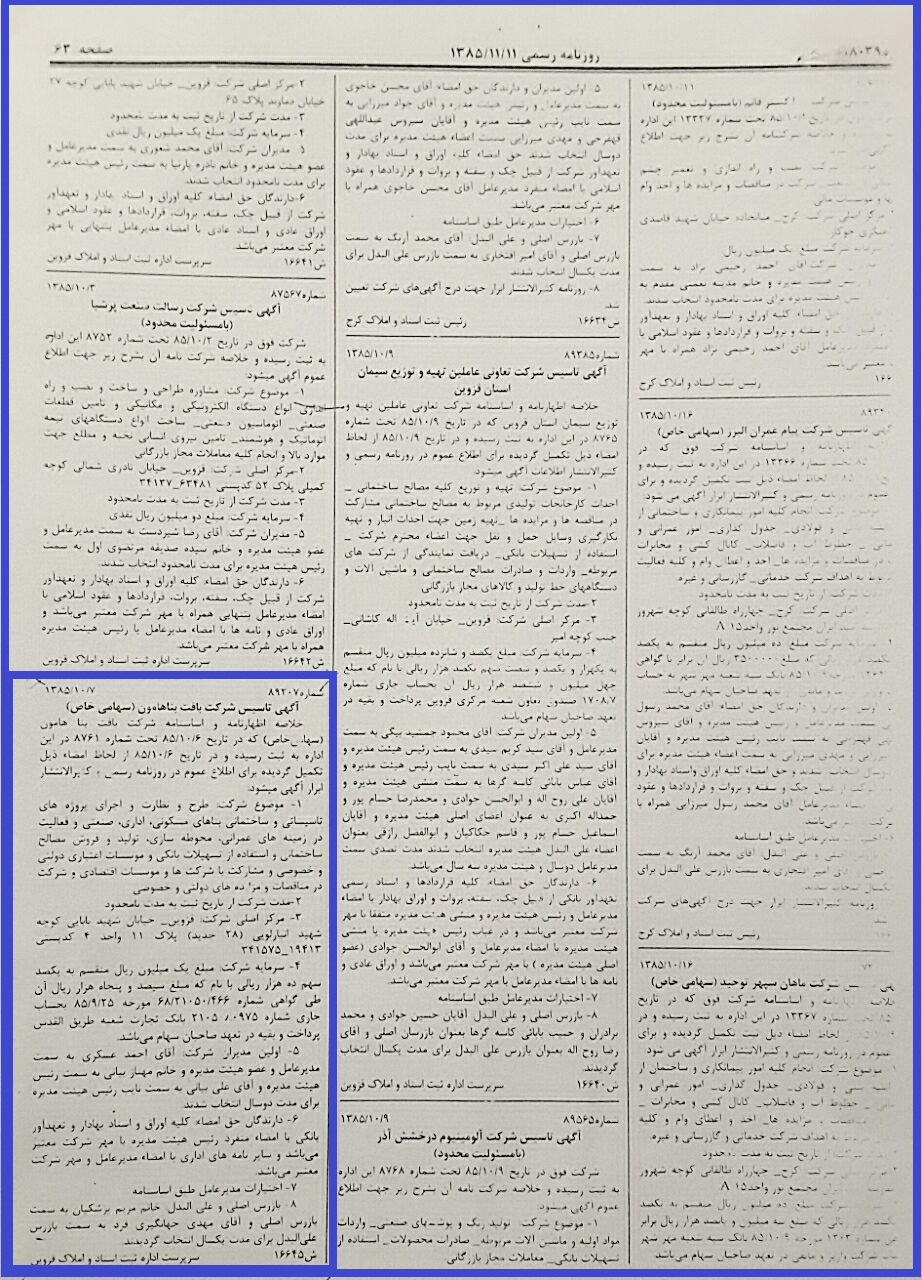 ۱۸۰۳۹
روزنامه رسمی ۱۳۸۵/۱۱/۱۱
صفحه ۶۳
۱۳۸۵/۱۰/۱۱
شرکت اکستر قائم (بامسئولیت محدود)
۸۵/۱۰/۹ تحت شماره ۱۳۳۲۷ این اداره
و خلاصه شرکتنامه آن بشرح زیر جهت اطلاع
شرکت نصب و راه اندازی و تعمیر چشم
شرکت در مناقصات و مزایده ها و اخذ وام
و موسسات مالی
مرکز اصلی شرکت: کرج_ میانجاده خیابان شهید قاصدی
عسگری جوکار
سرمایه شرکت مبلغ یک میلیون ریال
شرکت آقای احمد رحیمی نژاد به سمت
رئیس هیئت مدیره و خانم مدینه نعمتی مقدم به
هیئت مدیره برای مدت نامحدود انتخاب شدند.
حق امضاء کلیه اوراق و اسناد بهادار و تعهدآور
قبیل چک و سفته و بروات و قراردادها و عقود اسلامی با
مدیرعامل آقای احمد رحیمی نژاد همراه با مهر
معتبر می‌باشد
رئیس ثبت اسناد و املاک کرج
۱۳۸۵/۱۰/۱۶
آگهی تاسیس شرکت پیام عمران البرز (سهامی خاص)
اظهارنامه و اساسنامه شرکت فوق که در
تحت شماره ۱۳۳۶۶ در این اداره به ثبت رسیده و در
۸۵ لحاظ امضاء ذیل ثبت تکمیل گردیده و برای
عموم در روزنامه رسمی و کثیرالانتشار ابرار آگهی می شود.
شرکت: انجام کلیه امور پیمانکاری و ساختمانی از
و فولادی_ جدول گذاری_ امور عمرانی و
خطوط آب و فاضلاب_ کانال کشی و مخابرات
در مناقصات و مزایده ها_ اخذ و اعطای وام و کلیه فعالیت
مربوط به اهداف شرکت خدماتی_ گازرسانی و غیره.
مدت شرکت از تاریخ ثبت به مدت نامحدود
اصلی شرکت: کرج_ چهارراه طالقانی کوچه شهرور
ایران مجتمع نور واحد۱۵ A
سرمایه شرکت: مبلغ ده میلیون ریال منقسم به یکصد
یکصد هزار ریالی که مبلغ ۳۵۰۰۰۰۰ ریال آن برابر با گواهی
۸۵/۱۰/۹ بانک سیه شعبه مهر شهر به حساب
تعهد صاحبان سهام می‌باشد
مدیران و دارندگان حق امضاء آقای محمد رسول
و رئیس هیئت مدیره و آقای سیروس
قهفرخی به سمت نایب رئیس هیئت مدیره و آقایان
میرزایی و مهدی میرزایی به سمت اعضاء هیئت مدیره برای
انتخاب شدند و حق امضاء کلیه اوراق واسناد بهادار و
از قبیل چک و سفته و بروات و قراردادها و عقود
امضاء منفرد مدیرعامل آقای محمد رسول میرزایی همراه با
شرکت معتبر می‌باشد.
اختیارات مدیرعامل طبق اساسنامه
بازرس اصلی و علی البدل: آقای محمد آرنگ به سمت
اصلی و آقای امیر افتخاری به سمت بازرس علی البدل برای
یکسال انتخاب شدند.
روزنامه کثیرالانتشار ابرار جهت درج آگهی‌های شرکت
رئیس ثبت اسناد و املاک کرج
۱۳۸۵/۱۰/۱۶
آگهی تاسیس شرکت ماهان سپهر توحید (سهامی خاص)
خلاصه اظهارنامه و اساسنامه شرکت فوق که در تاریخ
۸۵/۱۰ تحت شماره ۱۳۳۶۷ در این اداره به ثبت رسیده و در
لحاظ امضاء ذیل ثبت تکمیل گردیده و برای
عموم در روزنامه رسمی و کثیرالانتشار ابرار آگهی می شود
موضوع شرکت: انجام کلیه امور پیمانکاری و ساختمان از
و فولادی_ جدول گذاری_ امور عمرانی و
خطوط آب و فاضلاب_ کانال کشی و مخابرات _
و مزایده ها_ اخذ و اعطای وام و کلیه
به اهداف شرکت خدماتی و گازرسانی و غیره.
شرکت از تاریخ ثبت به مدت نامحدود
اصلی شرکت: کرج_ چهارراه طالقانی کوچه شهرور
ایران مجتمع نور واحد۱۵ A
سرمایه شرکت: مبلغ ده میلیون ریال منقسم به یکصد
هزار ریالی که مبلغ سه میلیون و پانصد هزار ریال برابر
شماره ۱۳۶۳ مورخه ۸۵/۱۰/۹ بانک سیه شعبه مهر شهر
شرکت واریز و مابقی در تعهد صاحبان سهام می‌باشد.
۵- اولین مدیران و دارندگان حق امضاء آقای محسن خاجوی
به سمت مدیرعامل و رئیس هیئت مدیره و آقای جواد میرزایی به
سمت نایب رئیس هیئت مدیره و آقایان سیروس عبداللهی
قهفرخی و مهدی میرزایی بسمت اعضاء هیئت مدیره برای مدت
دوسال انتخاب شدند حق امضاء کلیه اوراق و اسناد بهادار و
تعهدآور از قبیل چک و سفته و بروات و قراردادها و عقود
اسلامی با امضاء منفرد مدیرعامل آقای محسن خاجوی همراه با
مهر شرکت معتبر می‌باشد
۶- اختیارات مدیرعامل طبق اساسنامه
۷- بازرس اصلی و علی البدل: آقای محمد آرنگ به سمت
بازرس اصلی و آقای امیر افتخاری به سمت بازرس علی البدل برای
مدت یکسال انتخاب شدند
۸- روزنامه کثیرالانتشار ابرار جهت درج آگهی‌های شرکت تعیین
شد.
ش۱۶۶۳۴ رئیس ثبت اسناد و املاک کرج
شماره۸۹۳۸۵ ۱۳۸۵/۱۰/۹
آگهی تاسیس شرکت تعاونی عاملین تهیه و توزیع سیمان
استان قزوین
خلاصه اظهارنامه و اساسنامه شرکت تعاونی عاملین تهیه و
توزیع سیمان استان قزوین که در تاریخ ۸۵/۱۰/۹ تحت شماره
۸۷۶۵ در این اداره به ثبت رسیده و در تاریخ ۸۵/۱۰/۹ از لحاظ
امضاء ذیل تکمیل گردیده برای اطلاع عموم در روزنامه رسمی و
کثیرالانتشار اطلاعات آگهی میشود
۱- موضوع شرکت: تهیه و توزیع کلیه مصالح ساختمانی _
احداث کارخانجات تولیدی مربوط به مصالح ساختمانی مشارکت
در مناقصه ها و مزایده ها _تهیه زمین جهت احداث انبار و تهیه
بکارگیری وسایل حمل و نقل جهت اعضاء محترم شرکت _
استفاده از تسهیلات بانکی_ دریافت نمایندگی از شرکت های
مربوطه_ واردات و صادرات مصالح ساختمانی و ماشین آلات و
دستگاههای خط تولید و کالاهای مجاز بازرگانی
۲-مدت شرکت از تاریخ ثبت به مدت نامحدود
۳- مرکز اصلی شرکت: قزوین_ خیابان آیت اله کاشانی_
جنب کوچه امیر
۴- سرمایه شرکت: مبلغ یکصد و شانزده میلیون ریال منقسم
به یکهزار و یکصد و شصت سهم یکصد هزار ریالی با نام که مبلغ
چهل میلیون و ششصد هزار ریال آن بحساب جاری شماره
۱۷۰۸/۷ صندوق تعاون شعبه مرکزی قزوین پرداخت و بقیه در
تعهد صاحبان سهام می‌باشد
۵- اولین مدیران شرکت: آقای محمود جمشید بیگی به سمت
مدیرعامل و آقای سید کریم سیدی به سمت رئیس هیئت مدیره و
آقای سید علی اکبر سیدی به سمت نایب رئیس هیئت مدیره و
آقای عباس بابائی کاسه گرها به سمت منشی هیئت مدیره و
آقایان علی روح اله و ابوالحسن جوادی و محمدرضا حسام پور و
حمداله اکبری به عنوان اعضای اصلی هیئت مدیره و آقایان
اسماعیل حسام پور و قاسم حکاکیان و ابوالفضل رازقی بعنوان
اعضاء علی البدل هیئت مدیره انتخاب شدند مدت تصدی سمت
مدیرعامل دوسال و هیئت مدیره سه سال می‌باشد.
۶- دارندگان حق امضاء: کلیه قراردادها و اسناد رسمی
تعهدآور بانکی از قبیل چک، سفته، بروات و اوراق بهادار با امضاء
مدیرعامل و رئیس هیئت مدیره و منشی هیئت مدیره متفقا با مهر
شرکت معتبر می‌باشد و در غیاب رئیس هیئت مدیره یا منشی
هیئت مدیره با امضاء مدیرعامل و آقای ابوالحسن جوادی (عضو
اصلی هیئت مدیره ) با مهر شرکت معتبر می‌باشد و اوراق عادی و
نامه ها با امضاء مدیرعامل با مهر شرکت معتبر می‌باشد.
۷- اختیارات مدیرعامل: طبق اساسنامه
۸- بازرس اصلی و علی البدل آقایان حسین جوادی و محمد
برادران و حبیب بابائی کاسه گرها بعنوان بازرسان اصلی و آقای
رضا روح اله بعنوان بازرس علی البدل برای مدت یکسال انتخاب
گردیدند.
ش۱۶۶۴۰ سرپرست اداره ثبت اسناد و املاک قزوین
شماره۸۹۵۶۵ ۱۳۸۵/۱۰/۹
آگهی تاسیس شرکت آلومینیوم درخشش آذر
(بامسئولیت محدود)
شرکت فوق در تاریخ ۸۵/۱۰/۹ تحت شماره ۸۷۶۸ این اداره
به ثبت رسیده و خلاصه شرکت نامه آن بشرح زیر جهت اطلاع
عموم آگهی میشود:
۱- موضوع شرکت: تولید رنگ و پوشهای صنعتی_ واردات
مواد اولیه و ماشین آلات مربوطه_ صادرات محصولات_ استفاده از
تسهیلات بانکی_ معاملات مجاز بازرگانی
۲-مرکز اصلی شرکت: قزوین_ خیابان شهید بابایی کوچه ۲۷
خیابان دماوند پلاک ۶۵
۳- مدت شرکت از تاریخ ثبت به مدت نامحدود
۴- سرمایه شرکت: مبلغ یک میلیون ریال نقدی
۵- مدیران شرکت: آقای محمد شعوری به سمت مدیرعامل و
عضو هیئت مدیره و خانم نادره پارنیا به سمت رئیس هیئت مدیره
برای مدت نامحدود انتخاب شدند.
۶-دارندگان حق امضاء کلیه اوراق و اسناد بهادار و تعهدآور
شرکت از قبیل چک، سفته، بروات، قراردادها و عقود اسلامی و
اوراق عادی و اسناد عادی با امضاء مدیرعامل بتنهایی با مهر
شرکت معتبر می‌باشد.
ش۱۶۶۴۱ سرپرست اداره ثبت اسناد و املاک قزوین
شماره۸۷۵۶۷ ۱۳۸۵/۱۰/۳
آگهی تاسیس شرکت رسالت صنعت پرشیا
(بامسئولیت محدود)
شرکت فوق در تاریخ ۸۵/۱۰/۲ تحت شماره ۸۷۵۲ این اداره
به ثبت رسیده و خلاصه شرکت نامه آن بشرح زیر جهت اطلاع
عموم آگهی میشود:
۱- موضوع شرکت: مشاوره طراحی و ساخت و نصب و راه
اندازی انواع دستگاه الکترونیکی و مکانیکی و تامین قطعات
صنعتی_ اتوماسیون صنعتی_ ساخت انواع دستگاههای نیمه
اتوماتیک و هوشمند_ تامین نیروی انسانی نخبه و مطلع جهت
موارد بالا و انجام کلیه معاملات مجاز بازرگانی
۲-مرکز اصلی شرکت: قزوین_ خیابان نادری شمالی کوچه
کمیلی پلاک ۵۲ کدپستی ۶۳۴۸۱_۳۴۱۳۷
۳- مدت شرکت از تاریخ ثبت به مدت نامحدود
۴- سرمایه شرکت: مبلغ دو میلیون ریال نقدی
۵- مدیران شرکت: آقای رضا شیردست به سمت مدیرعامل و
عضو هیئت مدیره و خانم سیده صدیقه مرتضوی اول به سمت
رئیس هیئت مدیره برای مدت نامحدود انتخاب شدند.
۶- دارندگان حق امضاء: کلیه اوراق و اسناد بهادار و تعهدآور
شرکت از قبیل چک، سفته، بروات، قراردادها و عقود اسلامی با
امضاء مدیرعامل بتنهایی همراه با مهر شرکت معتبر می‌باشد و
اوراق عادی و نامه ها با امضاء مدیرعامل یا رئیس هیئت مدیره
همراه با مهر شرکت معتبر می‌باشد.
ش۱۶۶۴۲ سرپرست اداره ثبت اسناد و املاک قزوین
شماره۸۹۲۰۷ ۱۳۸۵/۱۰/۷
آگهی تاسیس شرکت بافت بناهامون (سهامی خاص)
خلاصه اظهارنامه و اساسنامه شرکت بافت بنا هامون
(سهامی خاص) که در تاریخ ۸۵/۱۰/۶ تحت شماره ۸۷۶۱ در این
اداره به ثبت رسیده و در تاریخ ۸۵/۱۰/۶ از لحاظ امضاء ذیل
تکمیل گردیده برای اطلاع عموم در روزنامه رسمی و کثیرالانتشار
ابرار آگهی میشود:
۱- موضوع شرکت: طرح و نظارت و اجرای پروژه های
تاسیساتی و ساختمانی بناهای مسکونی، اداری، صنعتی و فعالیت
در زمینه های عمرانی، محوطه سازی، تولید و فروش مصالح
ساختمان و استفاده از تسهیلات بانکی و موسسات اعتباری دولتی
و خصوصی و مشارکت با شرکت ها و موسسات اقتصادی و شرکت
در مناقصات و مزایده های دولتی و خصوصی
۲-مدت شرکت از تاریخ ثبت به مدت نامحدود
۳- مرکز اصلی شرکت: قزوین_ خیابان شهید بابایی کوچه
شهید انبارلویی (۲۸ جدید) پلاک ۱۱ واحد ۴ کدپستی
۱۹۴۱۳_۳۴۱۵۷۵
۴- سرمایه شرکت: مبلغ یک میلیون ریال منقسم به یکصد
سهم ده هزار ریالی با نام که مبلغ سیصد و پنجاه هزار ریال آن
طی گواهی شماره ۶۸/۲۱۰۵۰/۴۶۶ مورخه ۸۵/۹/۲۵ بحساب
جاری شماره ۲۱۰۵۰۸۰۹۷۵ بانک تجارت شعبه طریق القدس
پرداخت و بقیه در تعهد صاحبان سهام می‌باشد.
۵- اولین مدیران شرکت: آقای احمد عسکری به سمت
مدیرعامل و عضو هیئت مدیره و خانم مهناز بیانی به سمت رئیس
هیئت مدیره و آقای علی بیانی به سمت نایب رئیس هیئت مدیره
برای مدت دوسال انتخاب شدند
۶- دارندگان حق امضاء: کلیه اوراق و اسناد بهادار و تعهدآور
بانکی با امضاء منفرد رئیس هیئت مدیره با مهر شرکت معتبر
می‌باشد و سایر نامه های اداری با امضاء مدیرعامل و مهر شرکت
معتبر می‌باشد.
۷- اختیارات مدیرعامل طبق اساسنامه
۸- بازرس اصلی و علی البدل: خانم مریم پرشکیان به سمت
بازرس اصلی و آقای مهدی جهانگیری فرد به سمت بازرس
علی‌البدل برای مدت یکسال انتخاب گردیدند.
ش۱۶۶۴۵ سرپرست اداره ثبت اسناد و املاک قزوین